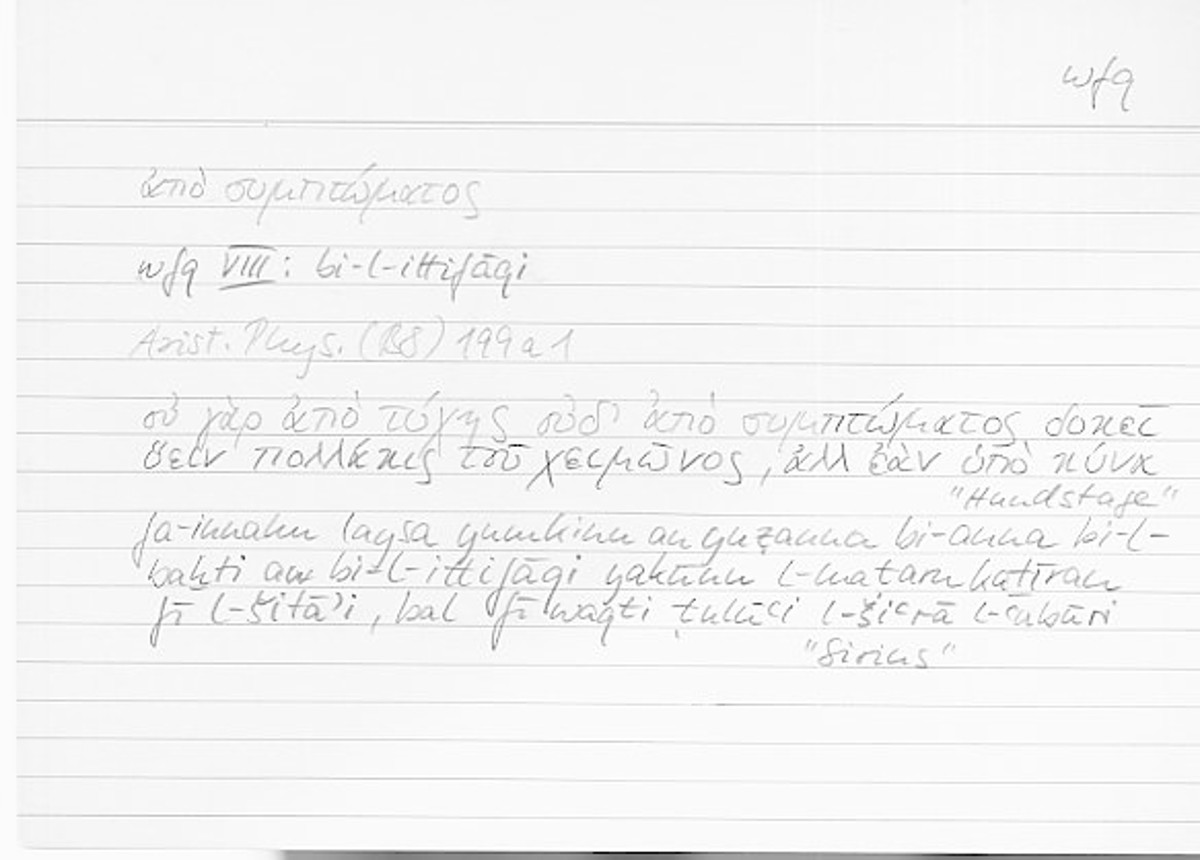 wfq
ἀπὸ συμπτώματος
wfq VIII: bi-l-ittifāqi
Arist. Phys. (B8) 199a1
οὐ γὰρ ἀπὸ τύχης οὐδ' ἀπὸ συμπτώματος δοκεῖ
ὕειν πολλάκις τοῦ χειμῶνος, ἀλλ' ἐὰν ὑπὸ κύνα
"Hundstage"
fa-innahu laysa yumkinu an yuẓanna bi-anna bi-l-
bahti aw bi-l-ittifāqi yakūnu l-maṭaru kaṯīran
fī l-šitāʾi, bal fī waqti ṭulūʿi l-šiʿrā l-ʿubūri
"Sirius"